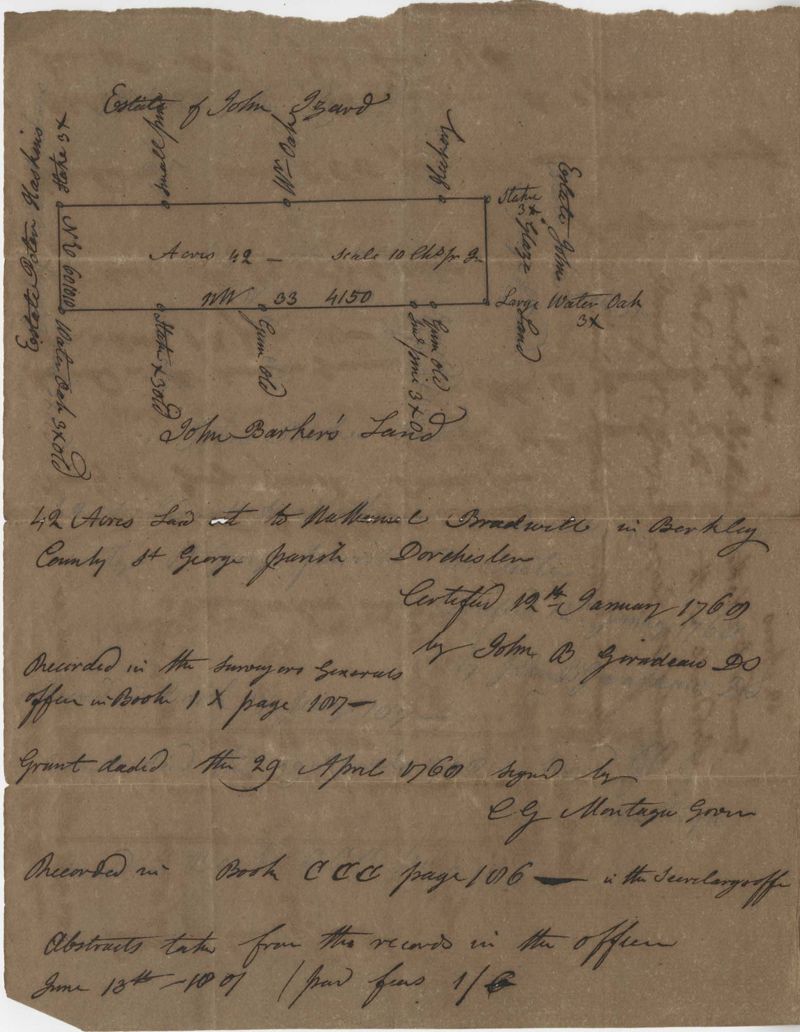 Estate of John Izard
Estate Haskins
Stake 3X
Small pine
W Oak
Hickory
Stake
3X
Estate John
Glaze
Land
Acres 42 — Scale 10 Chs pr In
NW 33 4150
Large Water Oak
3X
Water Oak 3X Old
Stake X3 Old
Gum Old
Gum Old
pine 3X O
John Barker's Land
42 Acres Land to Nathaniel Bradwell in Berkley
County St George parish Dorchester
Certified 12th January 1768
by John B Giradeau DS
Recorded in the Surveyors Generals
office in Book 1 X page 187—
Grant daded the 29 April 1768 signed by
C G Montague Govr
Recorded in Book CCC page 186 — in the Secretarys offe
Abstracts taken from the records in the offices
June 13th — 1801 / paid fees 1/6